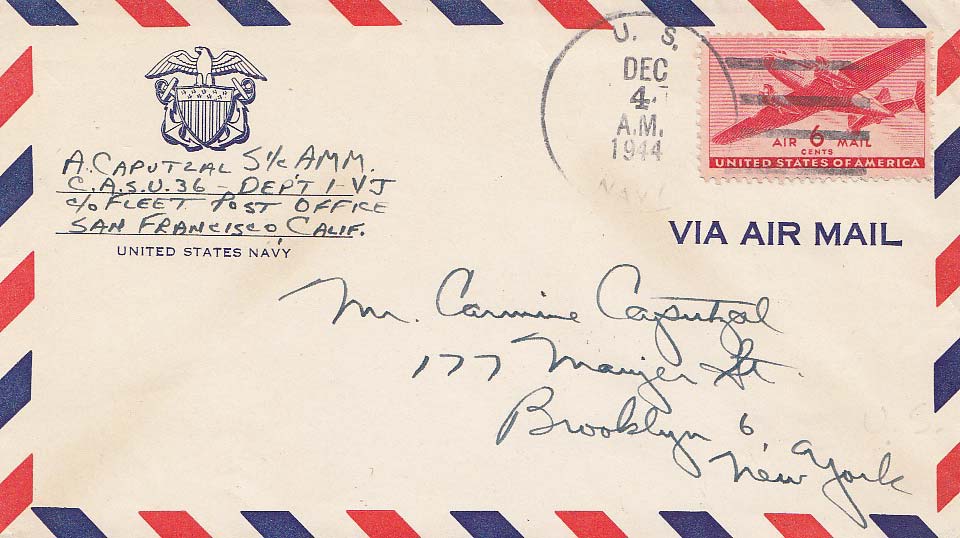 U. S.
DEC
4
A.M.
1944
NAVY
AIR 6 MAIL
CENTS
UNITED STATES OF AMERICA
A. CAPUTZAL S1/c AMM.
C.A.S.U. 36 - DEP'T 1-VJ
c/o FLEET POST OFFICE
SAN FRANCISCO, CALIF.
UNITED STATES NAVY
VIA AIR MAIL
Mr. Carmine Caputzal
177 Maujer St.
Brooklyn 6,
New York
U.S.